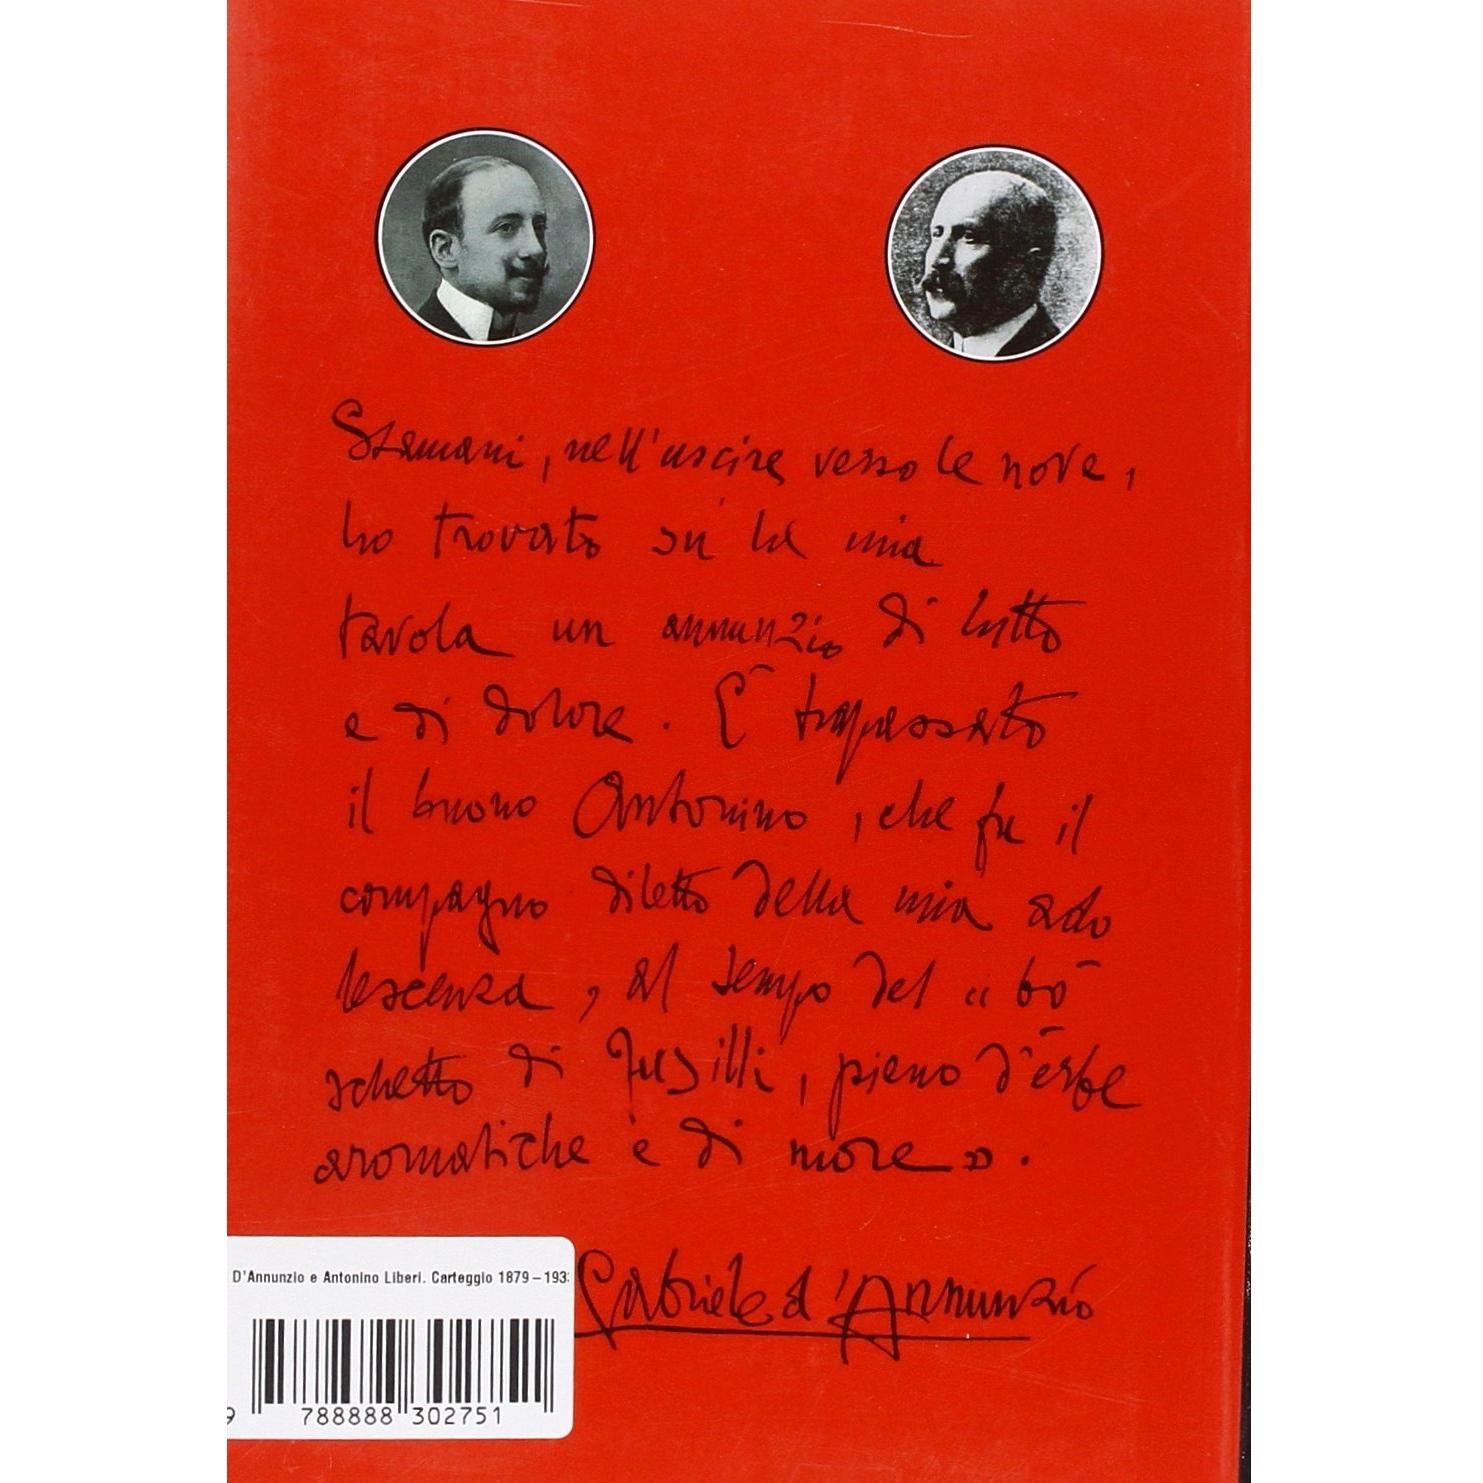 Stamani, nell'uscire verso le nove,
ho trovato su la mia
tavola un annunzio di lutto
e di dolore. È trapassato
il buono Antonino, che fu il
compagno diletto della mia ado
lescenza, al tempo del "bo
schetto di Fusilli, pieno d'erbe
aromatiche e di more».
Gabriele d'Annunzio
D'Annunzio e Antonino Liberi. Carteggio 1879–193
9 788888 302751